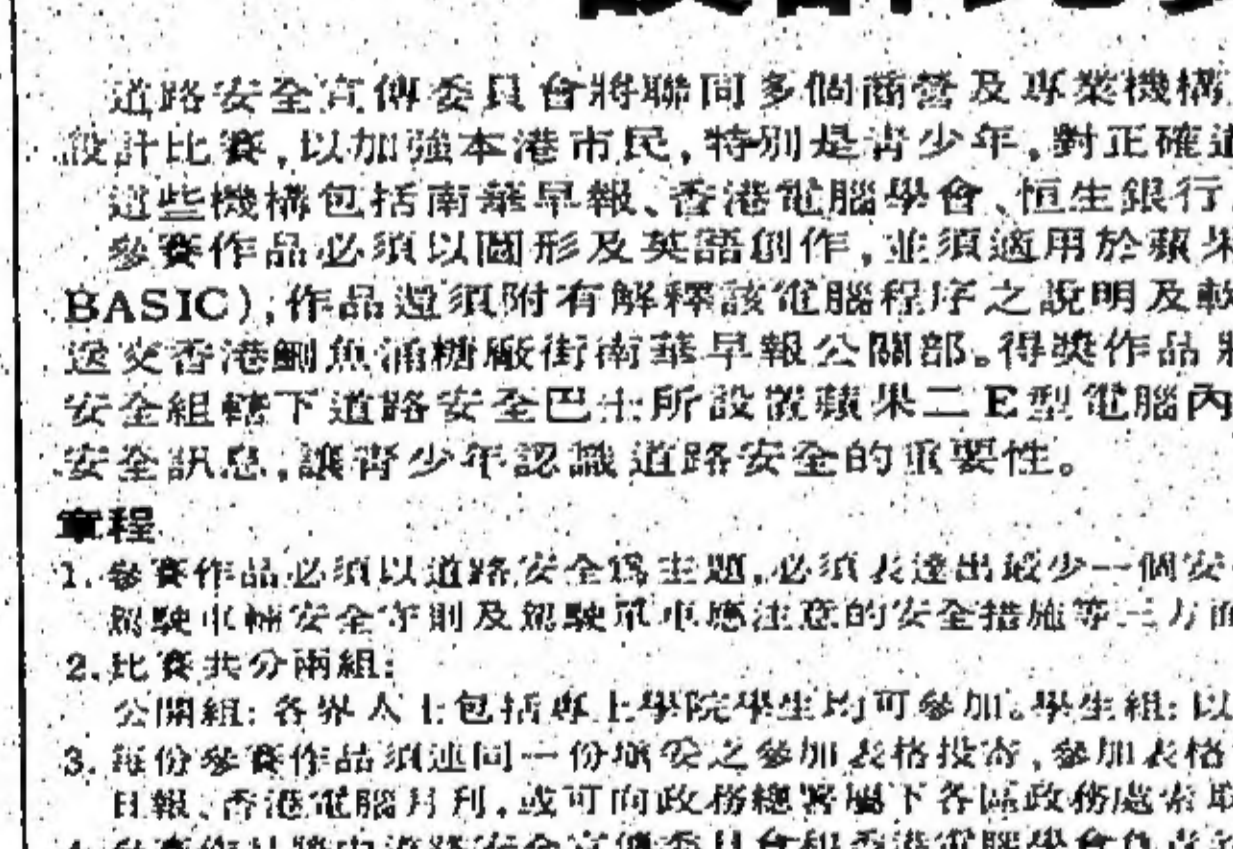 道路安全宣傳委員會將聯同多個商營及專業機構
設計比賽,以加強本港市民,特別是青少年,對正確道
這些機構包括南華早報、香港電腦學會、恒生銀行
參賽作品必須以圖形及英語創作,並須適用於蘋果
BASIC),作品還須附有解釋該電腦程序之說明及軟
送交香港鰂魚涌糖廠街南華早報公關部。得獎作品將
安全組轄下道路安全巴士所設置蘋果二E型電腦內
安全訊息,讓青少年認識道路安全的重要性。
章程
1.參賽作品必須以道路安全為主題,必須表達出最少一個安
駕駛車輛安全守則及駕駛單車應注意的安全措施等三方面
2.比賽共分兩組:
公開組:各界人士包括專上學院學生均可參加。學生組:以
3.每份參賽作品須連同一份填妥之參加表格投寄,參加表格
日報、香港電腦月刊,或可向政務總署屬下各區政務處索取
4.參賽作品將由道路安全宣傳委員會和香港電腦學會負責